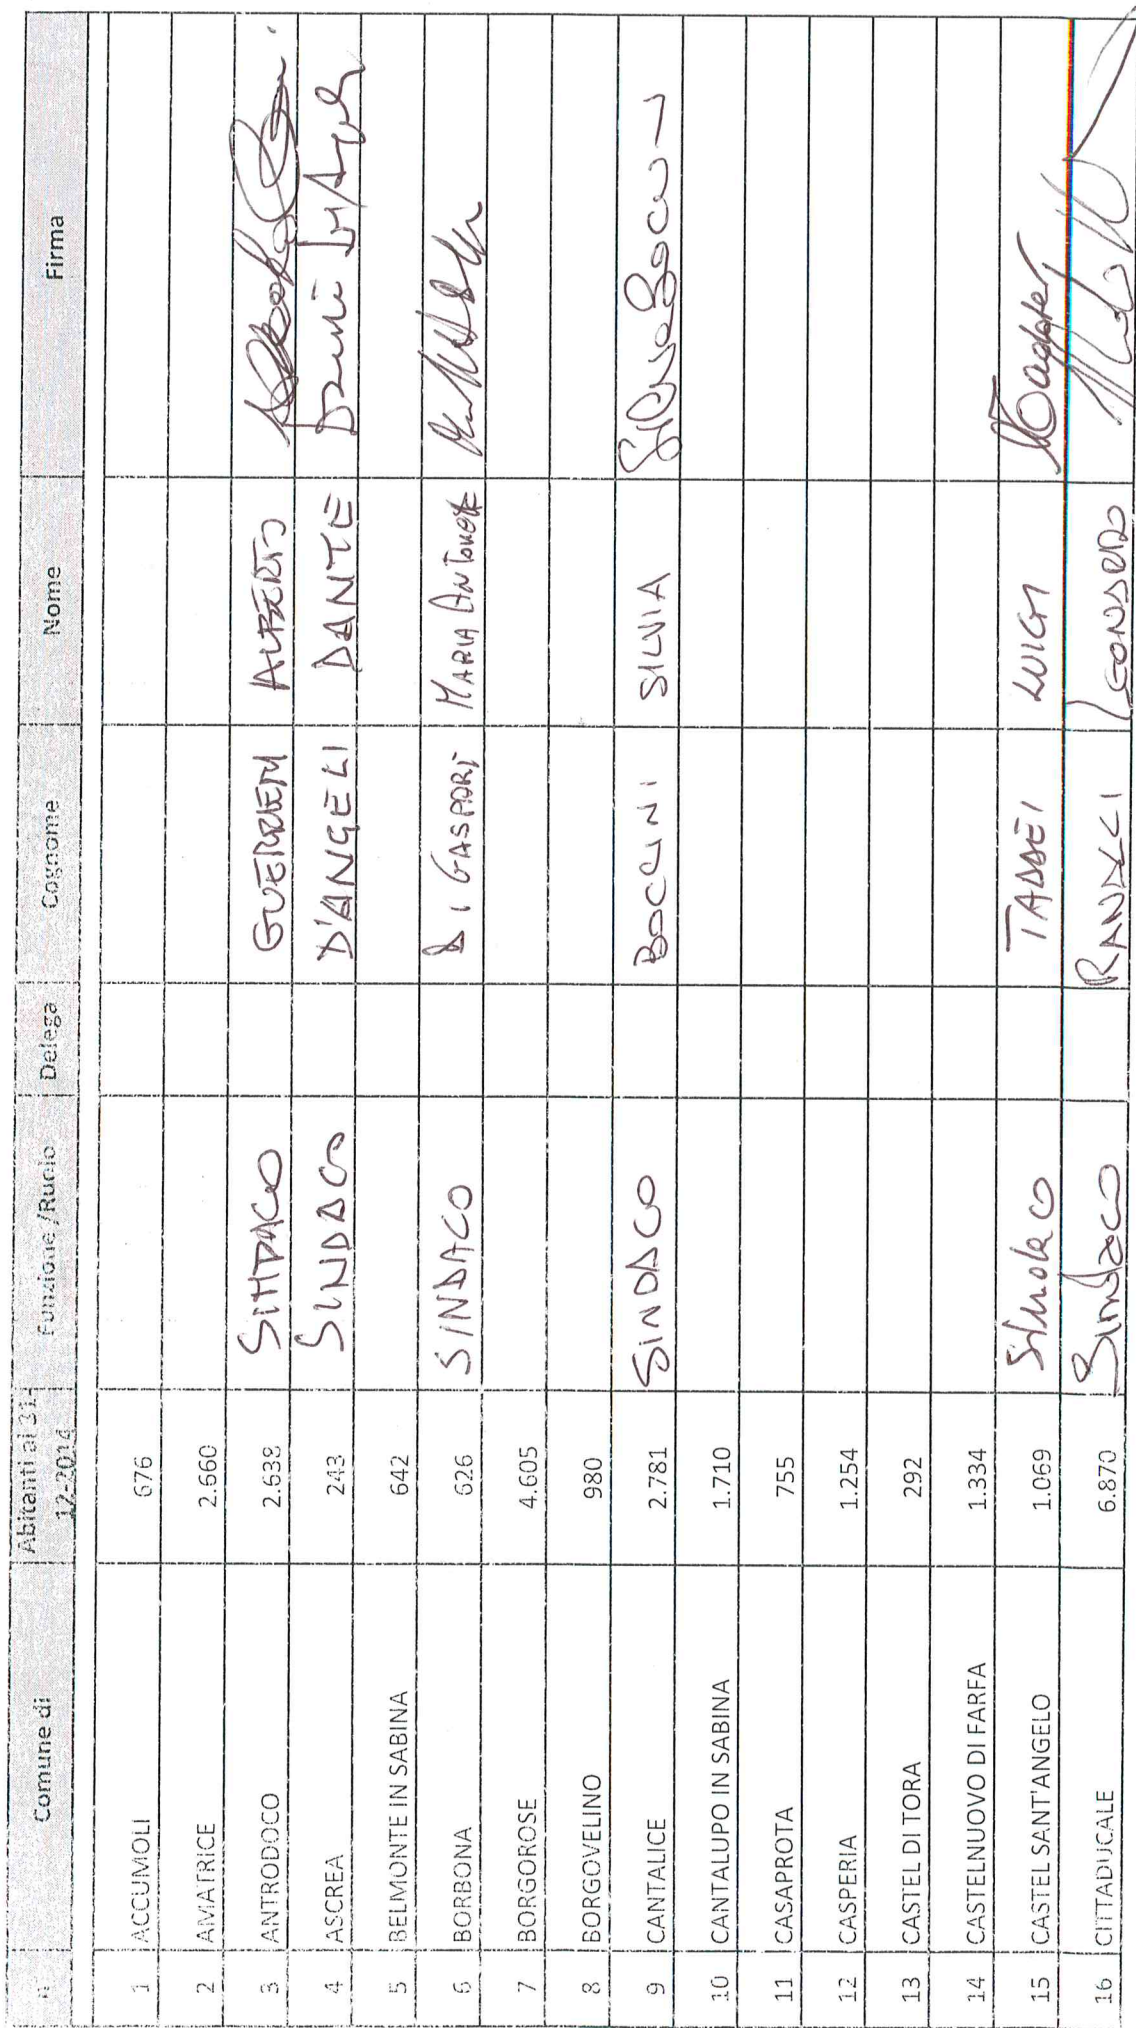 n Comune di Abitanti al 31-12-2014 Funzione /Ruolo Delega Cognome Nome Firma
1 ACCUMOLI 676
2 AMATRICE 2.660
3 ANTRODOCO 2.638 SINDACO GUERRIERI ALBERTO
4 ASCREA 243 SINDACO D'ANGELI DANTE Dante D'Angeli
5 BELMONTE IN SABINA 642
6 BORBONA 626 SINDACO DI GASPARI MARIA Antonietta
7 BORGOROSE 4.605
8 BORGOVELINO 980
9 CANTALICE 2.781 SINDACO BOCCINI SILVIA Silvia Boccini
10 CANTALUPO IN SABINA 1.710
11 CASAPROTA 755
12 CASPERIA 1.254
13 CASTEL DI TORA 292
14 CASTELNUOVO DI FARFA 1.334
15 CASTEL SANT'ANGELO 1.069 Sindaco TADDEI LUIGI
16 CITTADUCALE 6.870 Sindaco RANALLI LEONARDO